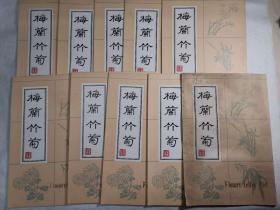 梅蘭竹菊
梅蘭竹菊
梅蘭竹菊
梅蘭竹菊
梅蘭竹菊
梅蘭竹菊
梅蘭竹菊
梅蘭竹菊
梅蘭竹菊
梅蘭竹菊
Flower Letter Pad